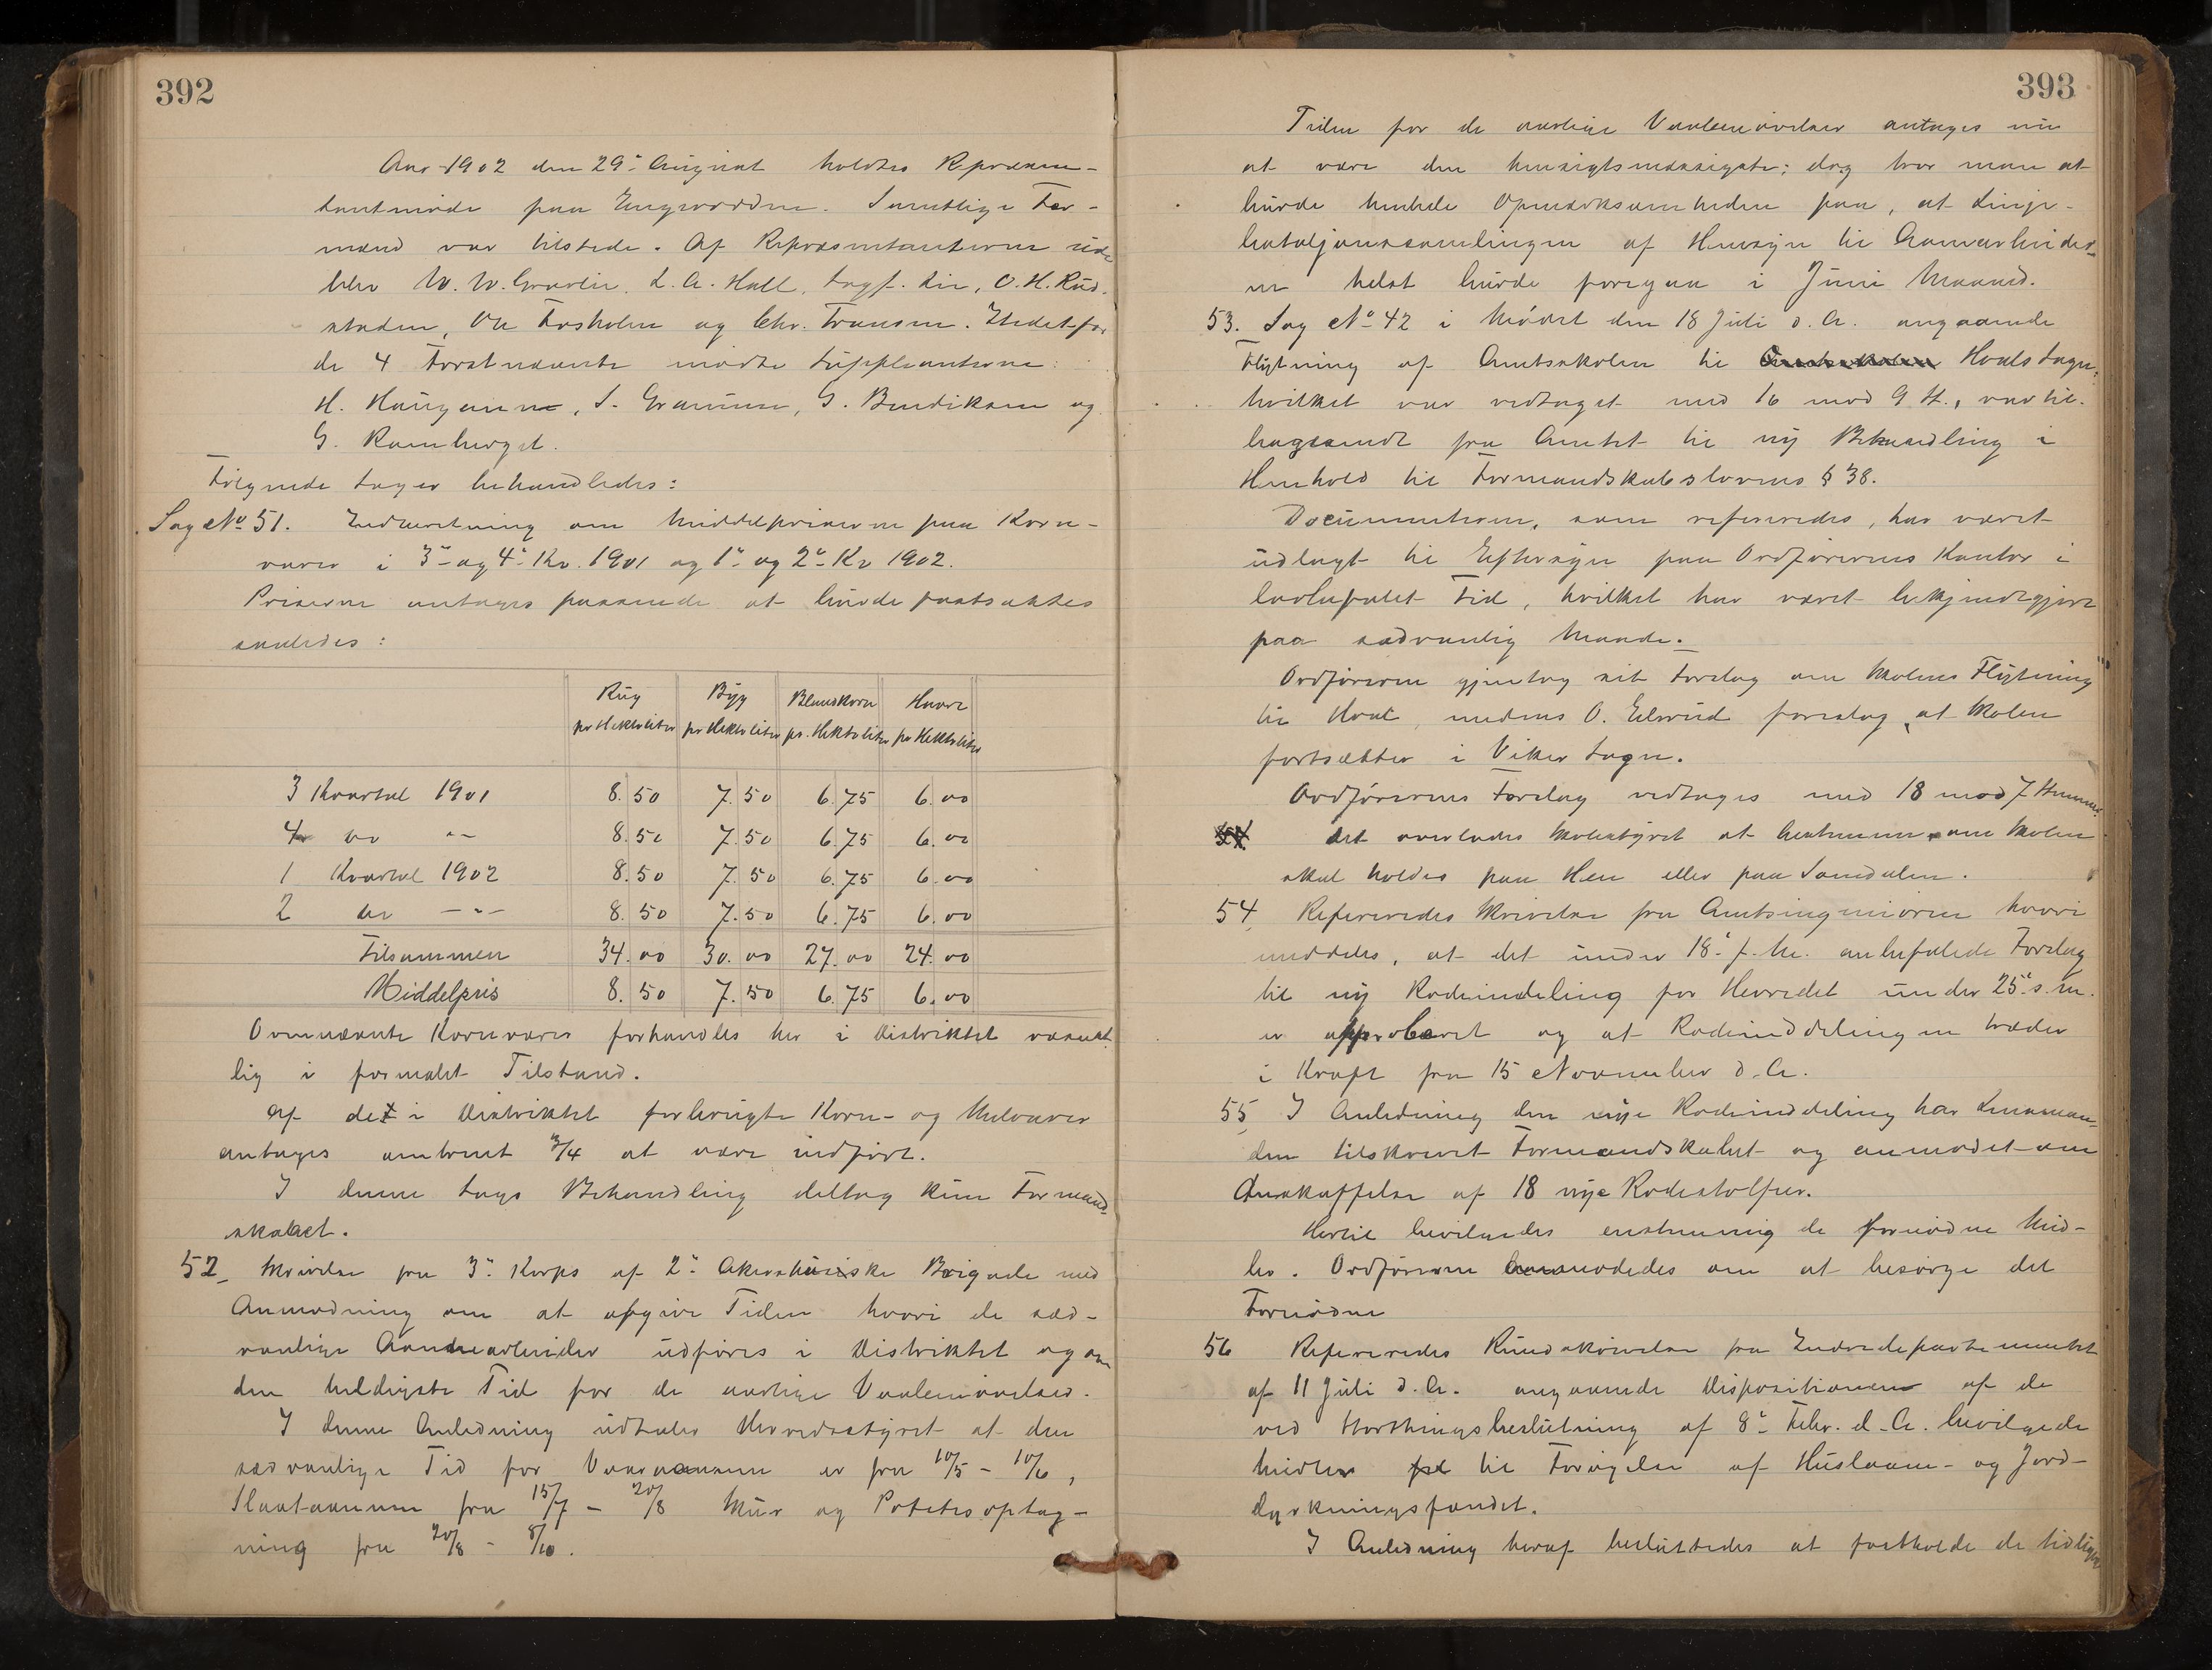 392
Aar 1902 den 29de August holdtes Repræsen-
tantmøde paa Engvorden. Samtlige For-
mænd var tilstede. Af Repræsentanterne ude
blev W. W. Gravlie, L. A. Hall, Sagf. Lie, O. H. Rud-
staden, Ole Fosholm og Chr. Fransen. Istedetfor
de 4 Førstnævnte mødte Suppleanterne:
H. Haugann, S. Granum, G. Bendiksen og
G. Ramberget.
Følgende Sager behandledes:
Sag No 51. Indberetning om Middelpriserne paa Korn-
varer i 3die og 4de Kv. 1901 og 1ste og 2det Kv 1902.
Priserne antages passende at burde fastsættes
saaledes:
Rug Byg Blandkorn Havre
pr Hektoliter pr Hektoliter pr. Hektoliter pr Hektoliter
3 Kvartal 1901 8.50 7.50 6.75 6.00
4 do -"- 8.50 7.50 6.75 6.00
1 Kvartal 1902 8.50 7.50 6.75 6.00
2 do -"- 8.50 7.50 6.75 6.00
Tilsammen 34.00 30.00 27.00 24.00
Middelpris 8.50 7.50 6.75 6.00
Ovennævnte Kornvarer forhandles her i Distriktet væsent
lig i formalet Tilstand.
Af det i Distriktet forbrugte Korn- og Melvarer
antages omtrent 3/4 at være indført.
I denne Sags Behandling deltog kun Formand-
skabet.
52. Skrivelse fra 3die Korps af 2den Akershusiske Brigade med
Anmodning om at opgive Tiden hvori de sæd-
vanlige Aannearbeider udføres i Distriktet og om
den heldigste Tid for de aarlige Vaabenøvelser.
I denne Anledning udtaler Herredsstyret at den
sædvanlige Tid for Vaaraannen er fra 10/5 - 10/6,
Slaataannen fra 15/7 - 20/8 Skur og Potetesoptag-
ning fra 20/8 - 8/10.
393
Tiden for de aarlige Vaabenøvelser antages nu
at være den hensigtsmæssigste; dog tror man at
burde henlede Opmærksomheden paa, at Linje-
bataljonssamlingen af Hensyn til Aannearbeider-
ne helst burde foregaa i Juni Maaned.
53. Sag No 42 i Mødet den 18 Juli d. A. angaaende
Flytning af Amtsskolen til Hvals Sogn,
hvilket var vedtaget med 16 mod 9 St., var til-
bagesendt fra Amtet til ny Behandling i
Henhold til Formandskabslovens § 38.
Documenterne, som refereredes, har været
udlagt til Eftersyn paa Ordførerens Kontor i
lovbefalet Tid, hvilket har været bekjendtgjort
paa sædvanlig Maade.
Ordføreren gjentog sit Forslag om Skolens Flytning
til Hval, medens O. Elsrud foreslog, at Skolen
fortsætter i Viker Sogn.
Ordførerens Forslag vedtages med 18 mod 7 Stemmer.
54. det overlades Skolestyret at bestemme om Skolen
skal holdes paa Hen eller paa Somdalen.
54. Refereredes Skrivelse fra Amtsingeniøren hvori
meddeles, at det under 18de f. M. anbefalede Forslag
til ny Rodeinddeling for Herredet under 25de s. M.
er approberet og at Rodeinddelingen træder
i Kraft fra 15 November d. A.
55, I Anledning den nye Rodeinddeling har Lensman-
den tilskrevet Formandskabet og anmodet om
Anskaffelse af 18 nye Rodestolper.
Hertil bevilgedes enstemmig de fornødne Mid-
ler. Ordføreren anmodedes om at besørge det
Fornødne
56 Refereredes Rundskrivelse fra Indredepartementet
af 11 Juli d. A. angaaende Dispositionen af de
ved Storthingsbeslutning af 8de Febr. d. A. bevilgede
Midler til Forøgelse af Huslaane- og Jord-
dyrkningsfondet.
I Anledning heraf besluttedes at fastholde de tidligere